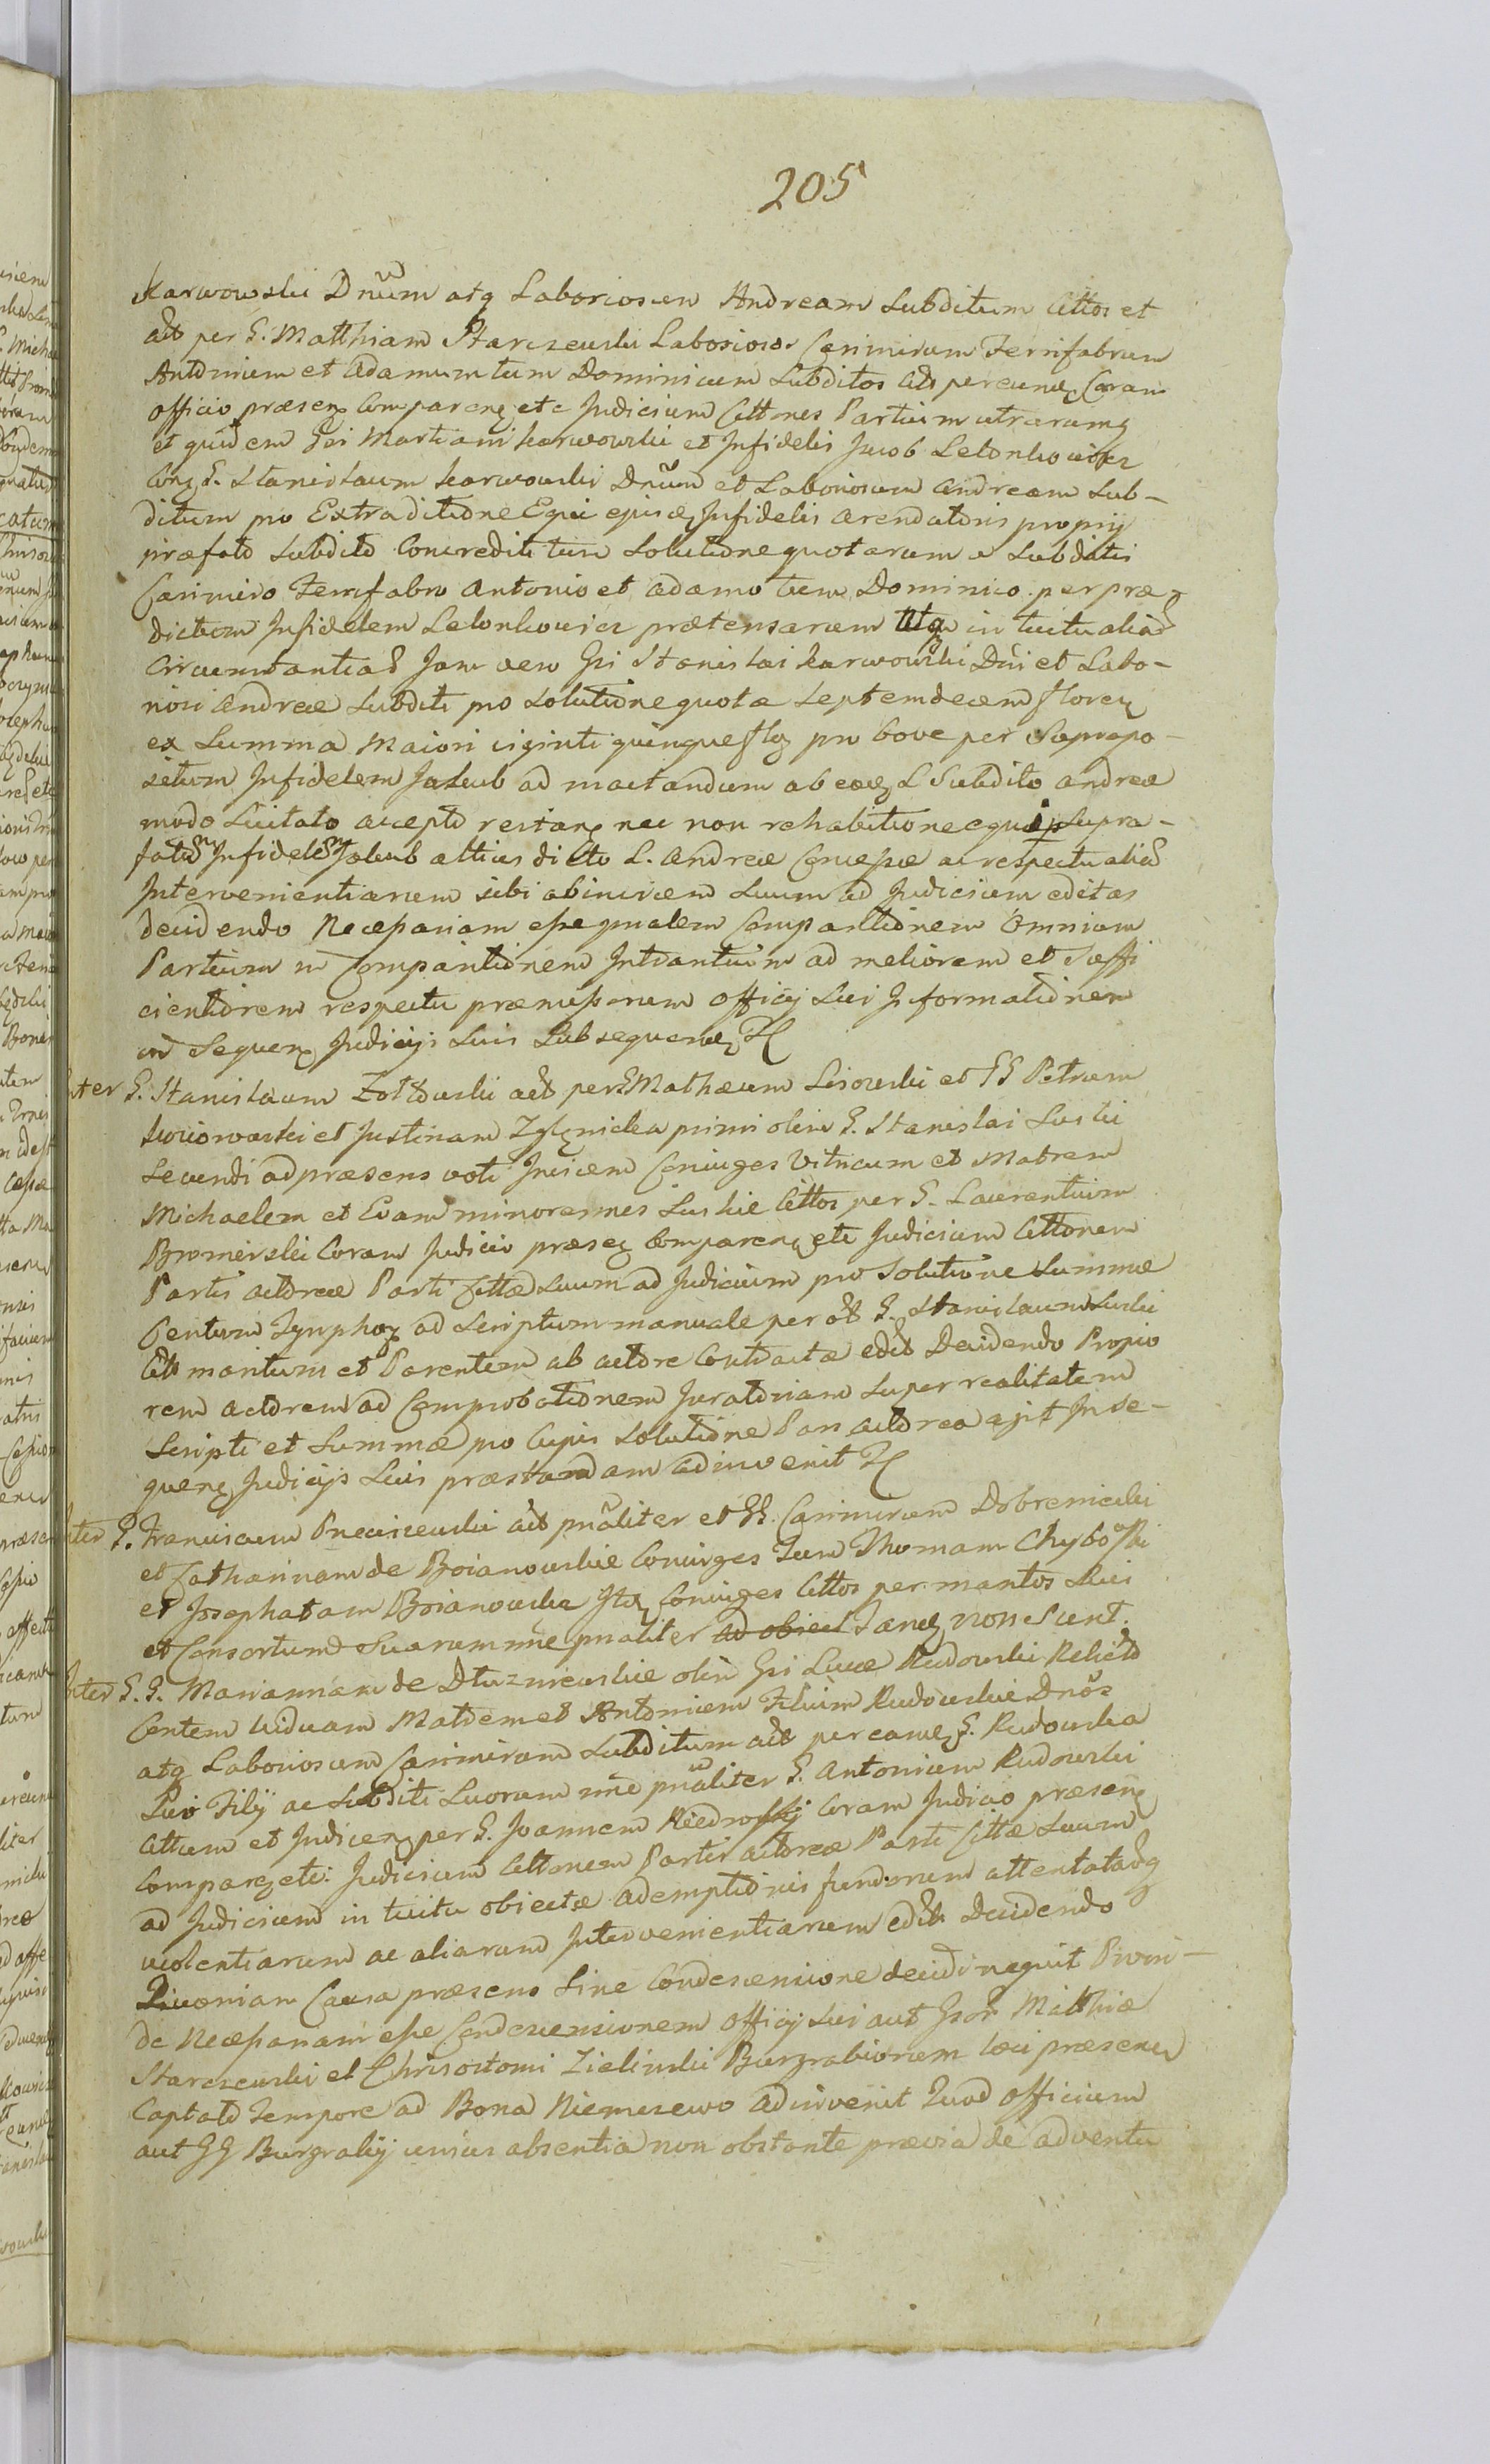 205
Karwowski Dnum atq Laboriosum Andream Subditum Cittos et
act per G. Matthiam Starczewski Laboriosos Casimirum Ferrifabrum
Antonium et Adamum tum Dominicum Subditos Cits per eumq Coram
officio præsenq Comparenq etc Judicium Cittones Partium utrarumq
et quidem Gsi Martiani Karwowski et Infidelis Jacob Lelonkowicz
Conq G. Stanislaum Karwowski Dnum et Laboriosum Andream Sub-
ditum pro Extraditione Equi ejusq Infidelis Arendatoris proprij
præfato Subdito Concrediti tum Solutione quotarum a Subditis
Casimiro Ferrifabro Antonio et Adamo tum Dominico per præ-
dictum Infidelem Lelonkowicz prætensarum in tuitu alias
Circumstantias Jam vero Gsi Stanislai Karwowski Dni et Labo-
riosi Andreæ Subditi pro Solutione quotæ Septemdecem florenq
ex Summa Maiori viginti quinque flq pro bove per Suprapo-
situm Infidelem Jakub ad mactandum ab eoq L Subdito Andrea
modo Licitato accepto restanq nec non rehabitione equi Supra-
fato Infideli Jakub altius dicto L. Andreæ Concessæ ac respectu alias
Intervenientiarum sibi abinvicem Suum ad Judicium editas
decidendo Necessariam esse personalem Comparitionem Omnium
Partium in Comparitionem Intrantium ad meliorem et Suffi
cientiorem respectu præmissorum Officij Sui Informationem
in Sequenq Judicijs Suis Subsequenq
Inter G. Stanislaum Zołtowski act per G Mathæum Lisowski et GG Petrum
et Justinam Zglenicka primi olim G. Stanislai Luski
Secundi ad præsens voti Invicem Coniuges Vitricum et Matrem
Michaelem et Evam minorennes Luskie Cittos per G. Laurentium
Bromirski Coram Judicio præsenq Comparenq etc Judicium Cittonem
Partis actoreæ Parti Cittæ Suum ad Judicium pro Solutione Summæ
Centum Tynphoq ad Scriptum manuale per olt G. Stanislaum Luski
Cits maritum et Parentem ab actore Contractæ edit Decidendo Propio
rem Actorem ad Comprobationem Juratoriam Super realitatem
Scripti et Summæ pro Cuius Solutione Pars actorea agit In Se-
quenq Judicijs Suis præstandam adinvenit
Inter G. Franciscum Preciszewski act pnaliter et GG. Casimirum Dobrenicki
et Catharinam de Boianowskie Coniuges Tum Thomam Chybowski
et Josephatam Boianowska Itq Coniuges Cittos per maritos Sui
et Consortum Suarum nne pnaliter ad obiect Tanq non Sunt.
Inter G. G. Mariannam de Dluzniewskie olim Gsi Lucæ Rudowski Relicto
Centem viduam Matrem et Antonium Filium Rudowskie Dnos
atq Laboriosum Casimirum Subditum act per eamq G. Rudowska
Sui Filij ac Subditi Suorum nne pnaliter G. Antonium Rudowski
Cittum et Judicenq per G. Joannem Coram Judicio præsenq
Comparenq etc: Judicium Cittonem Partis actoreæ Parti Cittæ Suum
ad Judicium in tuitu obiectæ ademptionis fundorum attentatas
violentiarum ac aliarum Intervenientiarum edit Decidendo
Quoniam Causa præsens Sine Condescensione decidi nequit Proin-
de Necessariam esse Condescensionem Officij Sui aut Gsor Matthiæ
Starczewski et Chrisostomi Zielinski Burgrabiorum loci præsenq
Captato Tempore ad Bona Niemczewo adinvenit Quod Officium
aut GG Burgrabij unius absentia non obstante prævia de adventu